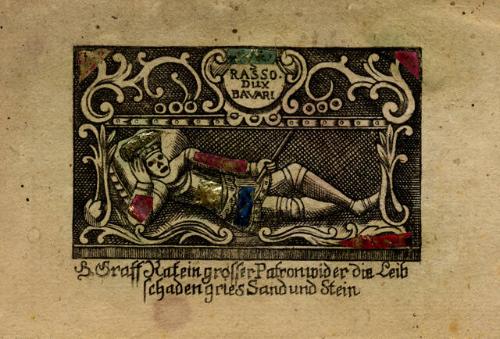 S
RASSO.
DUX
BAVARI
B. Graff Ratein grosser Patron wider die Leib
schaden gries Sand und Stein